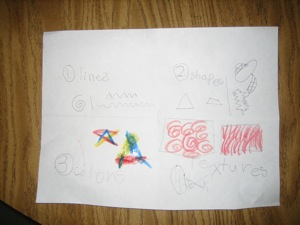 ① lines
② shapes
③ colors
textures